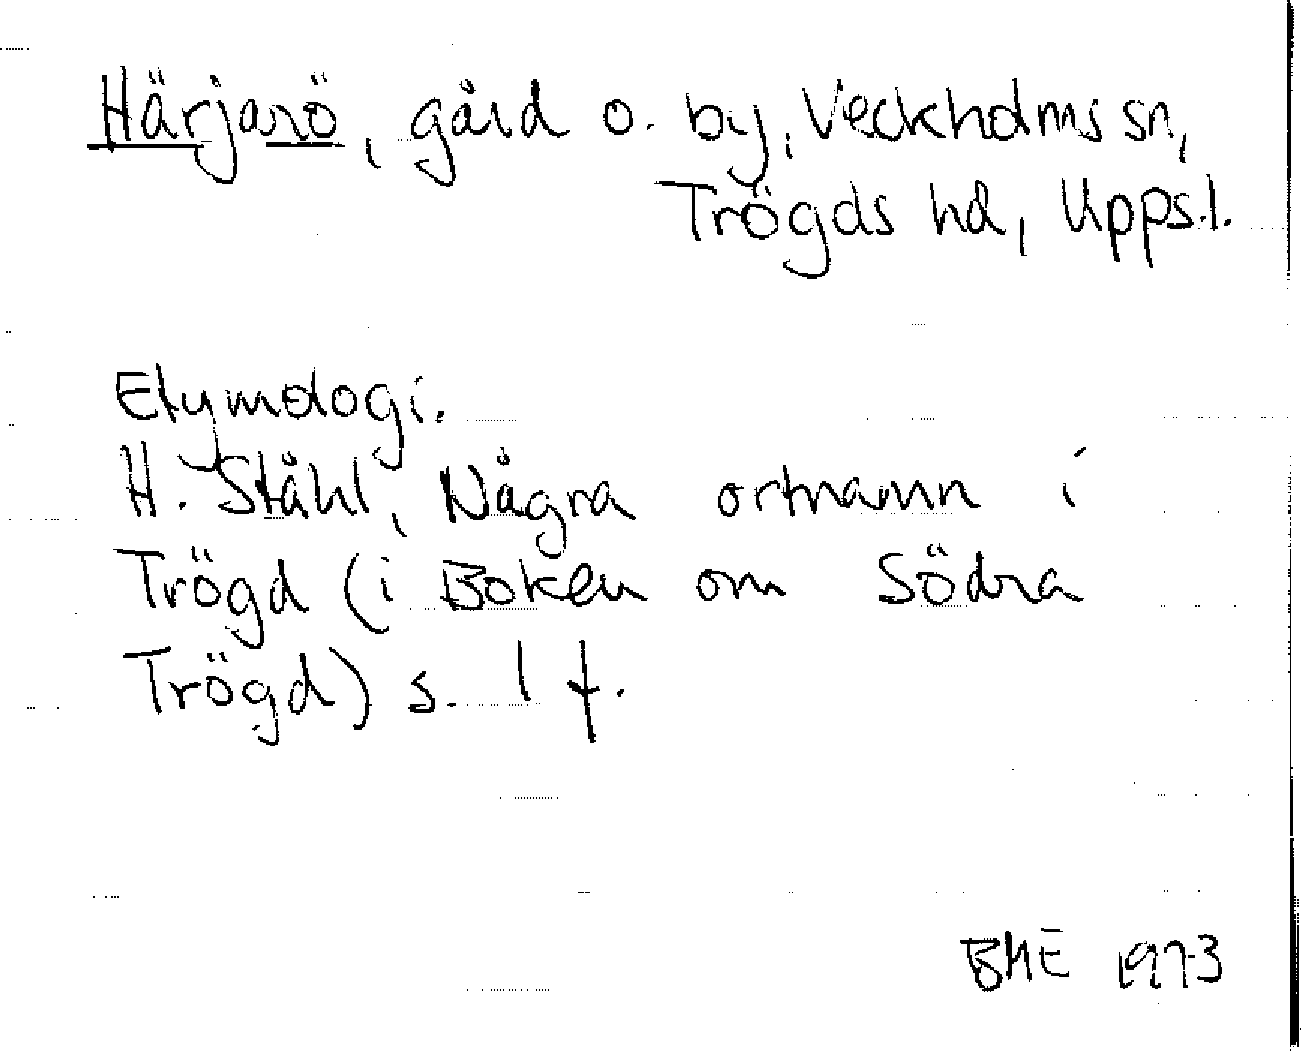 Härjarö, gård o. by, Veckholms sn,
Trögds hd, Upps.l.
Etymologi.
H. Ståhl, Några ortnamn i
Trögd (i Boken om Södra
Trögd) s. 1 f.
BME 1973